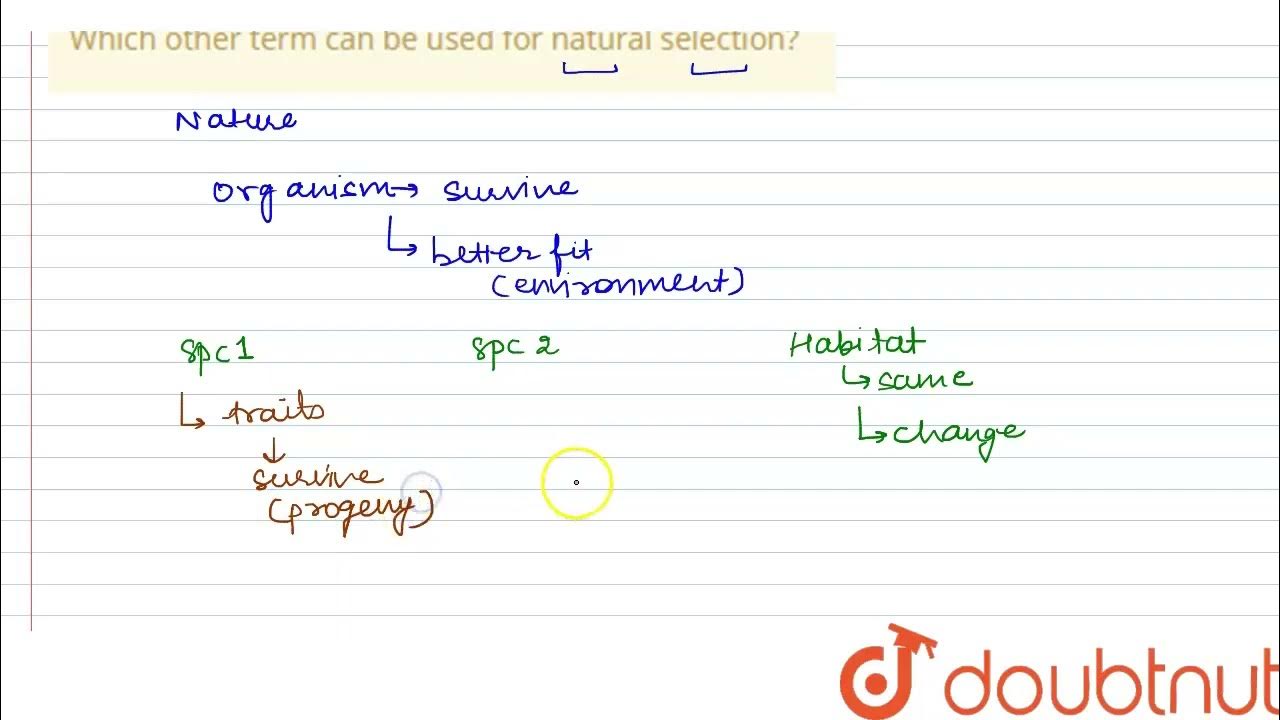 Which other term can be used for natural selection?
Nature
organism → survive
↳ better fit
(environment)
spc 1 spc 2 Habitat
↳ same
↳ traits
↳ change
↓
survive
(progeny)
doubtnut